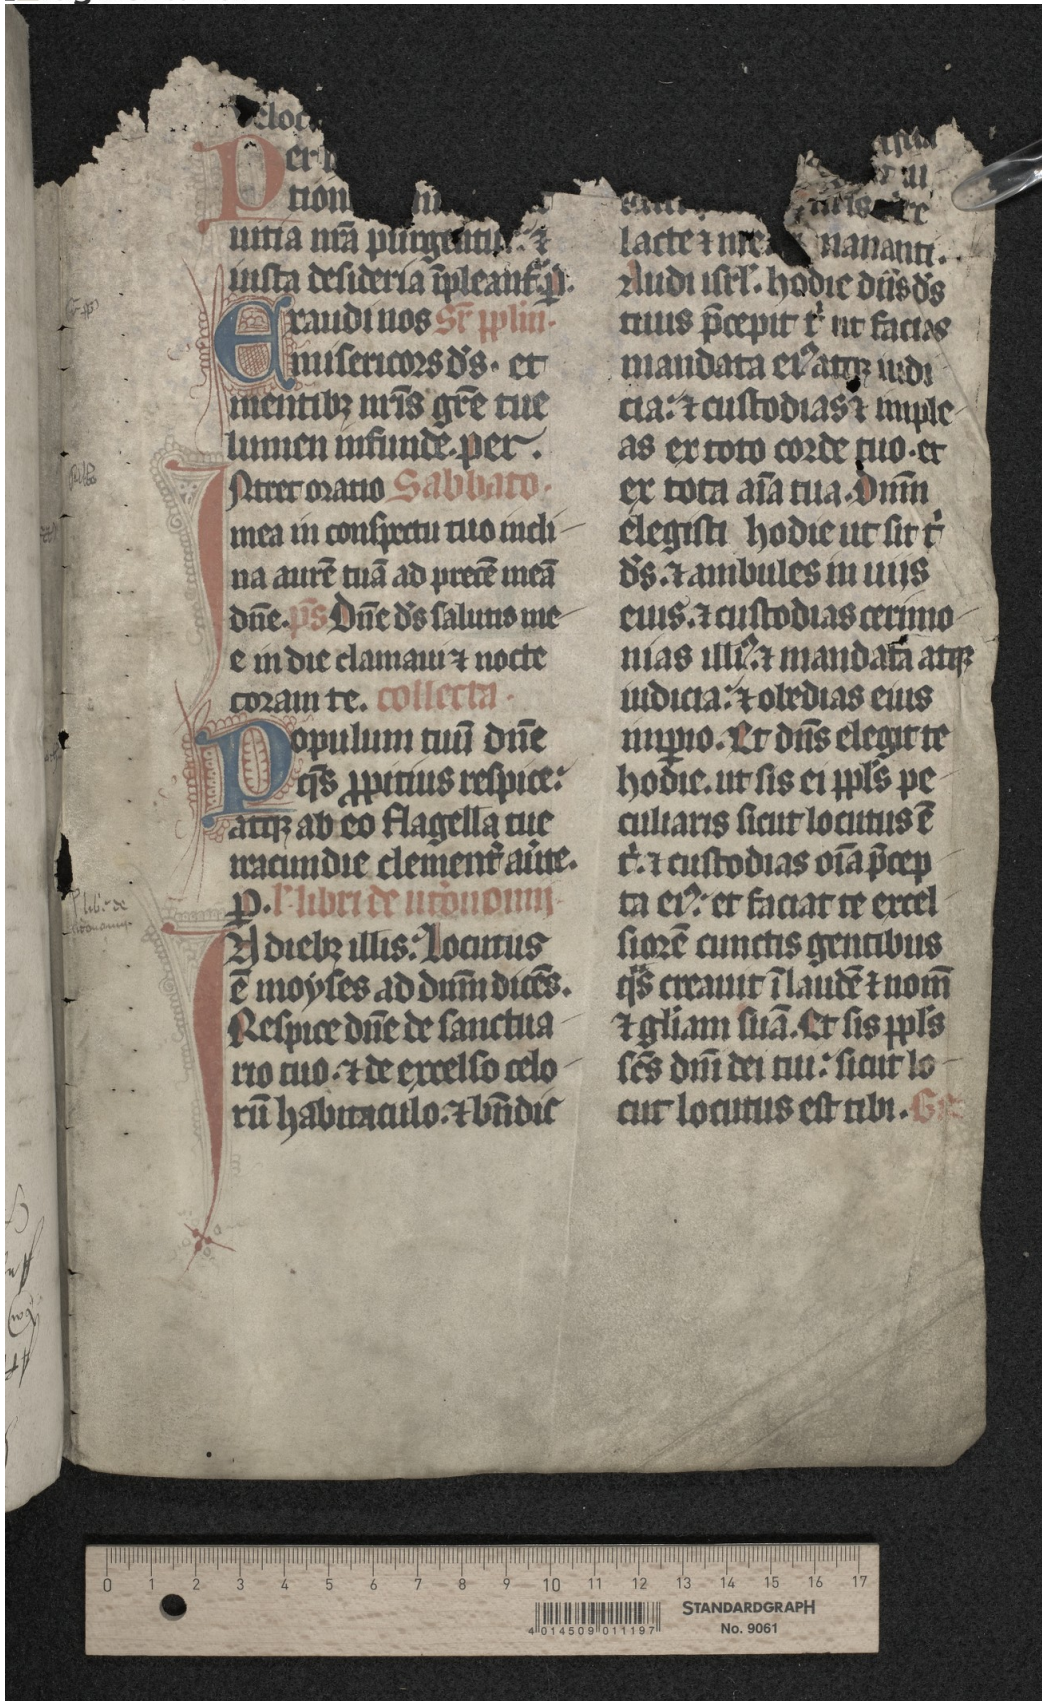 eloc
Per
tion
uitia nr̄a purgentur. ⁊
iusta desideria īpleant̄. p̱.
Exaudi nos Sr̄ pplm̄.
misericors ds̄. et
mentibꝫ nrīs gr̄e tue
lumen infunde. per.
Intret oratio Sabbato.
mea in conspectu tuo incli
na aurē tuā ad precē meā
dn̄e. ps̄ Dn̄e ds̄ salutis me
e in die clamaui ⁊ nocte
coram te. collecta.
Populum tuū dn̄e
qs̄ ꝓpitius respice:
atqꝫ ab eo flagella tue
iracundie clement̄ auͥte.
p̱. l' libri deutͦonomii
In diebꝫ illis: Locutus
ē moyses ad dn̄m dicēs.
Respice dn̄e de sanctua
rio tuo. ⁊ de excelso celo
rū habitaculo. ⁊ bn̄dic
lacte ⁊ me mananti.
Audi isrl̄. hodie dn̄s ds̄
tuus p̄cepit tͥ ut facias
mandata eiꝰ atqꝫ iudi
cia: ⁊ custodias ⁊ imple
as ex toto corde tuo. et
ex tota aīa tua. Dn̄m
elegisti hodie ut sit tͥ
ds̄. ⁊ ambules in uiis
eius. ⁊ custodias cerimo
nias illiꝰ. ⁊ mandata atqꝫ
iudicia: ⁊ obedias eius
imp̱io. Et dn̄s elegit te
hodie. ut sis ei ppl̄s pe
culiaris sicut locutus ē
tͥ. ⁊ custodias oīa p̄cep
ta eiꝰ: et faciat te excel
siorē cunctis gentibus
qͣs creauit ī laudē ⁊ nom̄
⁊ gl̄iam suā. Et sis ppl̄s
scs̄ dn̄i dei tui: sicut lo
cut locutus est tibi. Gr̄
0 1 2 3 4 5 6 7 8 9 10 11 12 13 14 15 16 17
STANDARDGRAPH
No. 9061
4 014509 011197